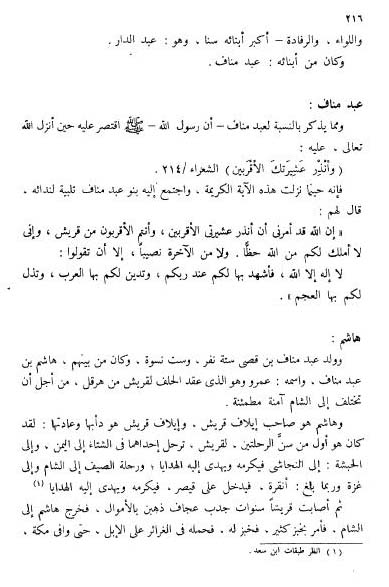 ٢١٦
واللواء ، والرفادة – أكبر أبنائه سنا ، وهو : عبد الدار .
وكان من أبنائه : عبد مناف .
عبد مناف :
ومما يذكر بالنسبة لعبد مناف – أن رسول الله – ﷺ اقتصر عليه حين أنزل الله
تعالى ، عليه :
( وأنذر عشيرتك الأقربين ) الشعراء / ٢١٤ .
فإنه حينما نزلت هذه الآية الكريمة ، واجتمع إليه بنو عبد مناف تلبية لندائه ،
قال لهم :
« إن الله قد أمرنى أن أنذر عشيرتى الأقربين ، وأنتم الأقربون من قريش ، وإنى
لا أملك لكم من الله حظًّا . ولا من الآخرة نصيباً ، إلا أن تقولوا :
لا إله إلا الله ، فأشهد بها لكم عند ربكم ، وتدين لكم بها العرب ، وتذل
لكم بها العجم » .
هاشم :
وولد عبد مناف بن قصى ستة نفر ، وست نسوة ، وكان من بينهم ، هاشم بن
عبد مناف . واسمه : عمرو وهو الذى عقد الحلف لقريش من هرقل ، من أجل أن
تختلف إلى الشام آمنة مطمئنة .
وهاشم هو صاحب إيلاف قريش . وإيلاف قريش هو دأبها وعادتها : لقد
كان هو أول من سنَّ الرحلتين . لقريش ، ترحل إحداهما فى الشتاء إلى اليمن ، وإلى
الحبشة : إلى النجاشى فيكرمه ويهدى إليه الهدايا ؛ ورحلة الصيف إلى الشام وإلى
غزة وربما بلغ : أنقرة . فيدخل على قيصر . فيكرمه ويهدى إليه الهدايا (١)
ثم أصابت قريشاً سنوات جدب عجاف ذهبن بالأموال . فخرج هاشم إلى
الشام . فأمر بخبز كثير . فخبز له . فحمله فى الغرائر على الإبل ، حتى وافى مكة ،
( ١ ) انظر طبقات ابن سعد .